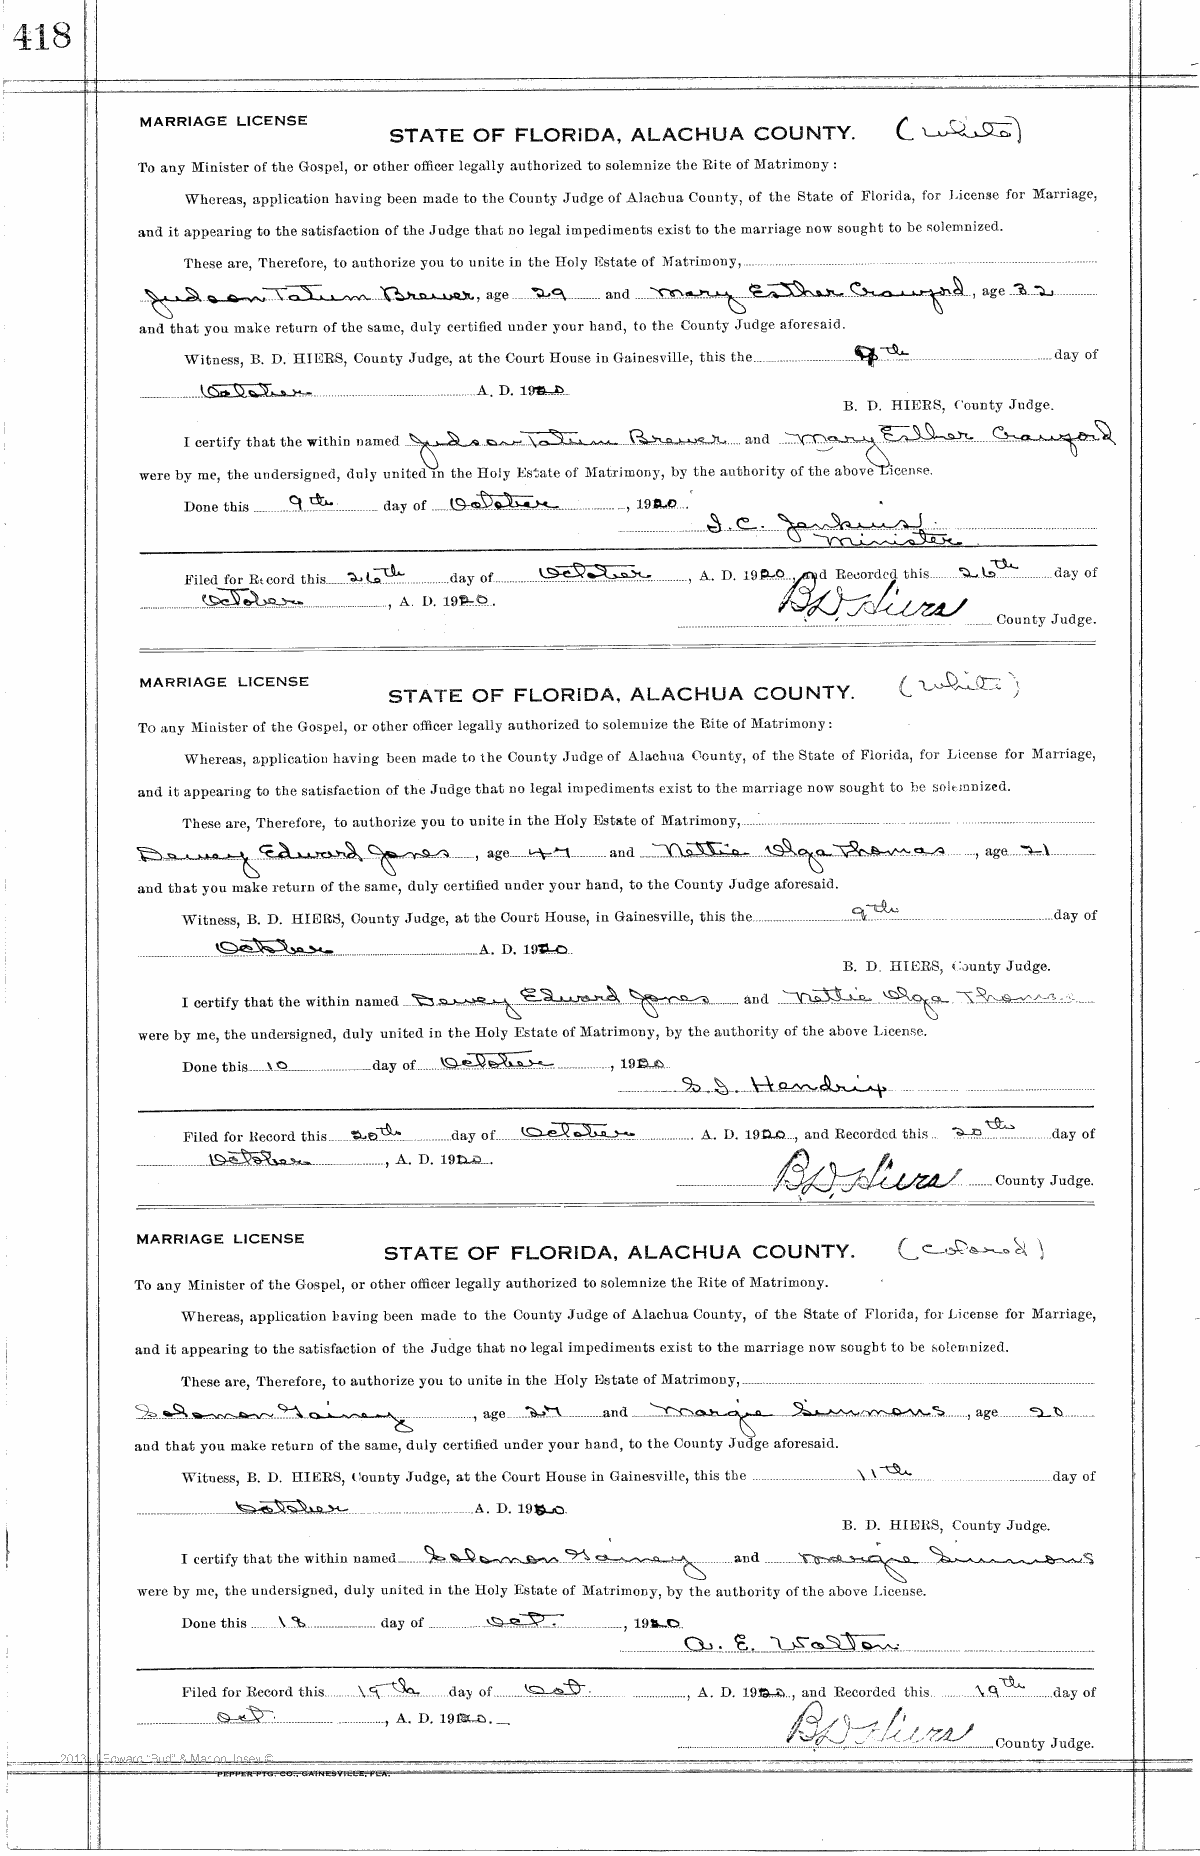 418
MARRIAGE LICENSE
STATE OF FLORIDA, ALACHUA COUNTY. (White)
To any Minister of the Gospel, or other officer legally authorized to solemnize the Rite of Matrimony :
Whereas, application having been made to the County Judge of Alachua County, of the State of Florida, for License for Marriage,
and it appearing to the satisfaction of the Judge that no legal impediments exist to the marriage now sought to be solemnized.
These are, Therefore, to authorize you to unite in the Holy Estate of Matrimony,
Judson Tatum Brewer, age 29 and Mary Esther Crawford, age 32
and that you make return of the same, duly certified under your hand, to the County Judge aforesaid.
Witness, B. D. HIERS, County Judge, at the Court House in Gainesville, this the 9th day of
October A. D. 1920
B. D. HIERS, County Judge.
I certify that the within named Judson Tatum Brewer and Mary Esther Crawford
were by me, the undersigned, duly united in the Holy Estate of Matrimony, by the authority of the above License.
Done this 9th day of October, 1920.
I. C. Jenkins
Minister
Filed for Record this 26th day of October, A. D. 1920, and Recorded this 26th day of
October, A. D. 1920.
B D Hiers County Judge.
MARRIAGE LICENSE
STATE OF FLORIDA, ALACHUA COUNTY. (White)
To any Minister of the Gospel, or other officer legally authorized to solemnize the Rite of Matrimony :
Whereas, application having been made to the County Judge of Alachua County, of the State of Florida, for License for Marriage,
and it appearing to the satisfaction of the Judge that no legal impediments exist to the marriage now sought to be solemnized.
These are, Therefore, to authorize you to unite in the Holy Estate of Matrimony,
Dewey Edward Jones, age 47 and Nettie Olga Thomas, age 21
and that you make return of the same, duly certified under your hand, to the County Judge aforesaid.
Witness, B. D. HIERS, County Judge, at the Court House, in Gainesville, this the 9th day of
October A. D. 1920
B. D. HIERS, County Judge.
I certify that the within named Dewey Edward Jones and Nettie Olga Thomas
were by me, the undersigned, duly united in the Holy Estate of Matrimony, by the authority of the above License.
Done this 10 day of October, 1920
S. J. Hendrix
Filed for Record this 20th day of October. A. D. 1920, and Recorded this 20th day of
October, A. D. 1920.
B D Hiers County Judge.
MARRIAGE LICENSE
STATE OF FLORIDA, ALACHUA COUNTY. (Colored)
To any Minister of the Gospel, or other officer legally authorized to solemnize the Rite of Matrimony.
Whereas, application having been made to the County Judge of Alachua County, of the State of Florida, for License for Marriage,
and it appearing to the satisfaction of the Judge that no legal impediments exist to the marriage now sought to be solemnized.
These are, Therefore, to authorize you to unite in the Holy Estate of Matrimony,
Solomon Gainey, age 27 and Margie Simmons, age 20
and that you make return of the same, duly certified under your hand, to the County Judge aforesaid.
Witness, B. D. HIERS, County Judge, at the Court House in Gainesville, this the 11th day of
October A. D. 1920
B. D. HIERS, County Judge.
I certify that the within named Solomon Gainey and Margie Simmons
were by me, the undersigned, duly united in the Holy Estate of Matrimony, by the authority of the above License.
Done this 18 day of Oct., 1920
A. E. Walton
Filed for Record this 19th day of Oct., A. D. 1920, and Recorded this 19th day of
Oct., A. D. 1920.
B D Hiers County Judge.
2013 Edward "Bud" & Macon Josey ©
PEPPER PTG. CO., GAINESVILLE, FLA.